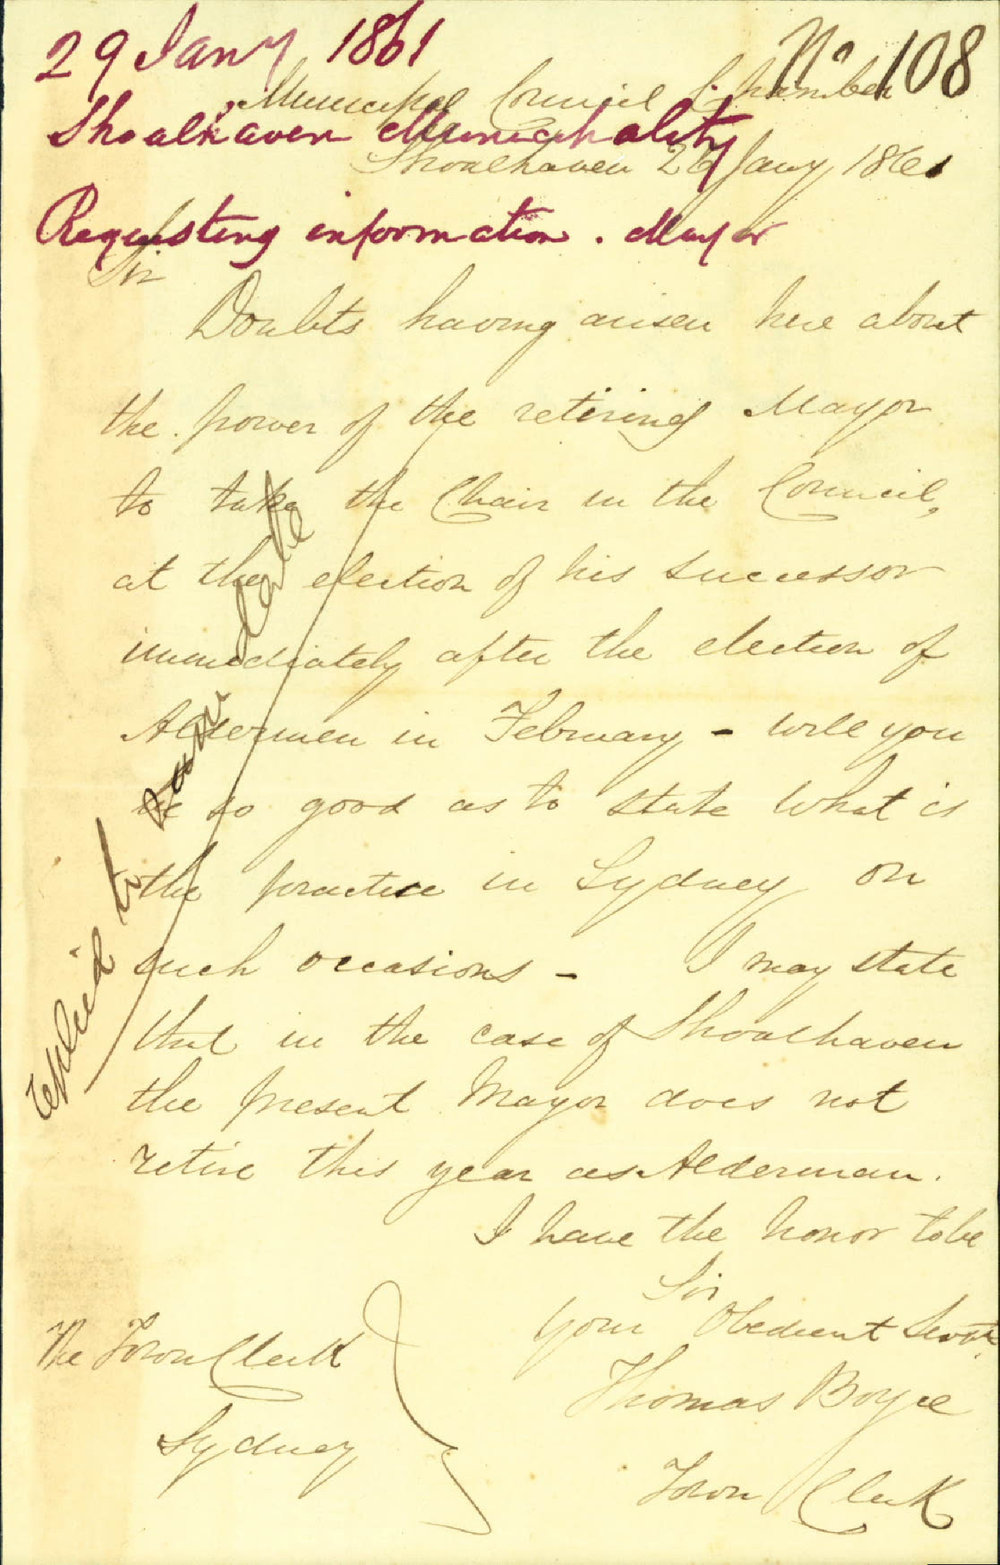 29 Jany 1861
No 108
Municipal Council Chamber
Shoalhaven Municipality
Shoalhaven 26 Jany 1861
Requesting information. Mayor
Sir
Doubts having arisen here about
the power of the retiring Mayor
to take the Chair in the Council,
at the election of his successor
immediately after the election of
Aldermen in February - will you
be so good as to state what is
the practice in Sydney on
such occasions - I may state
that in the case of Shoalhaven
the present Mayor does not
retire this year as Alderman.
I have the honor to be
Sir
Your Obedient Servt.
Thomas Boyce
Town Clerk
The Town Clerk
Sydney
replied to same date